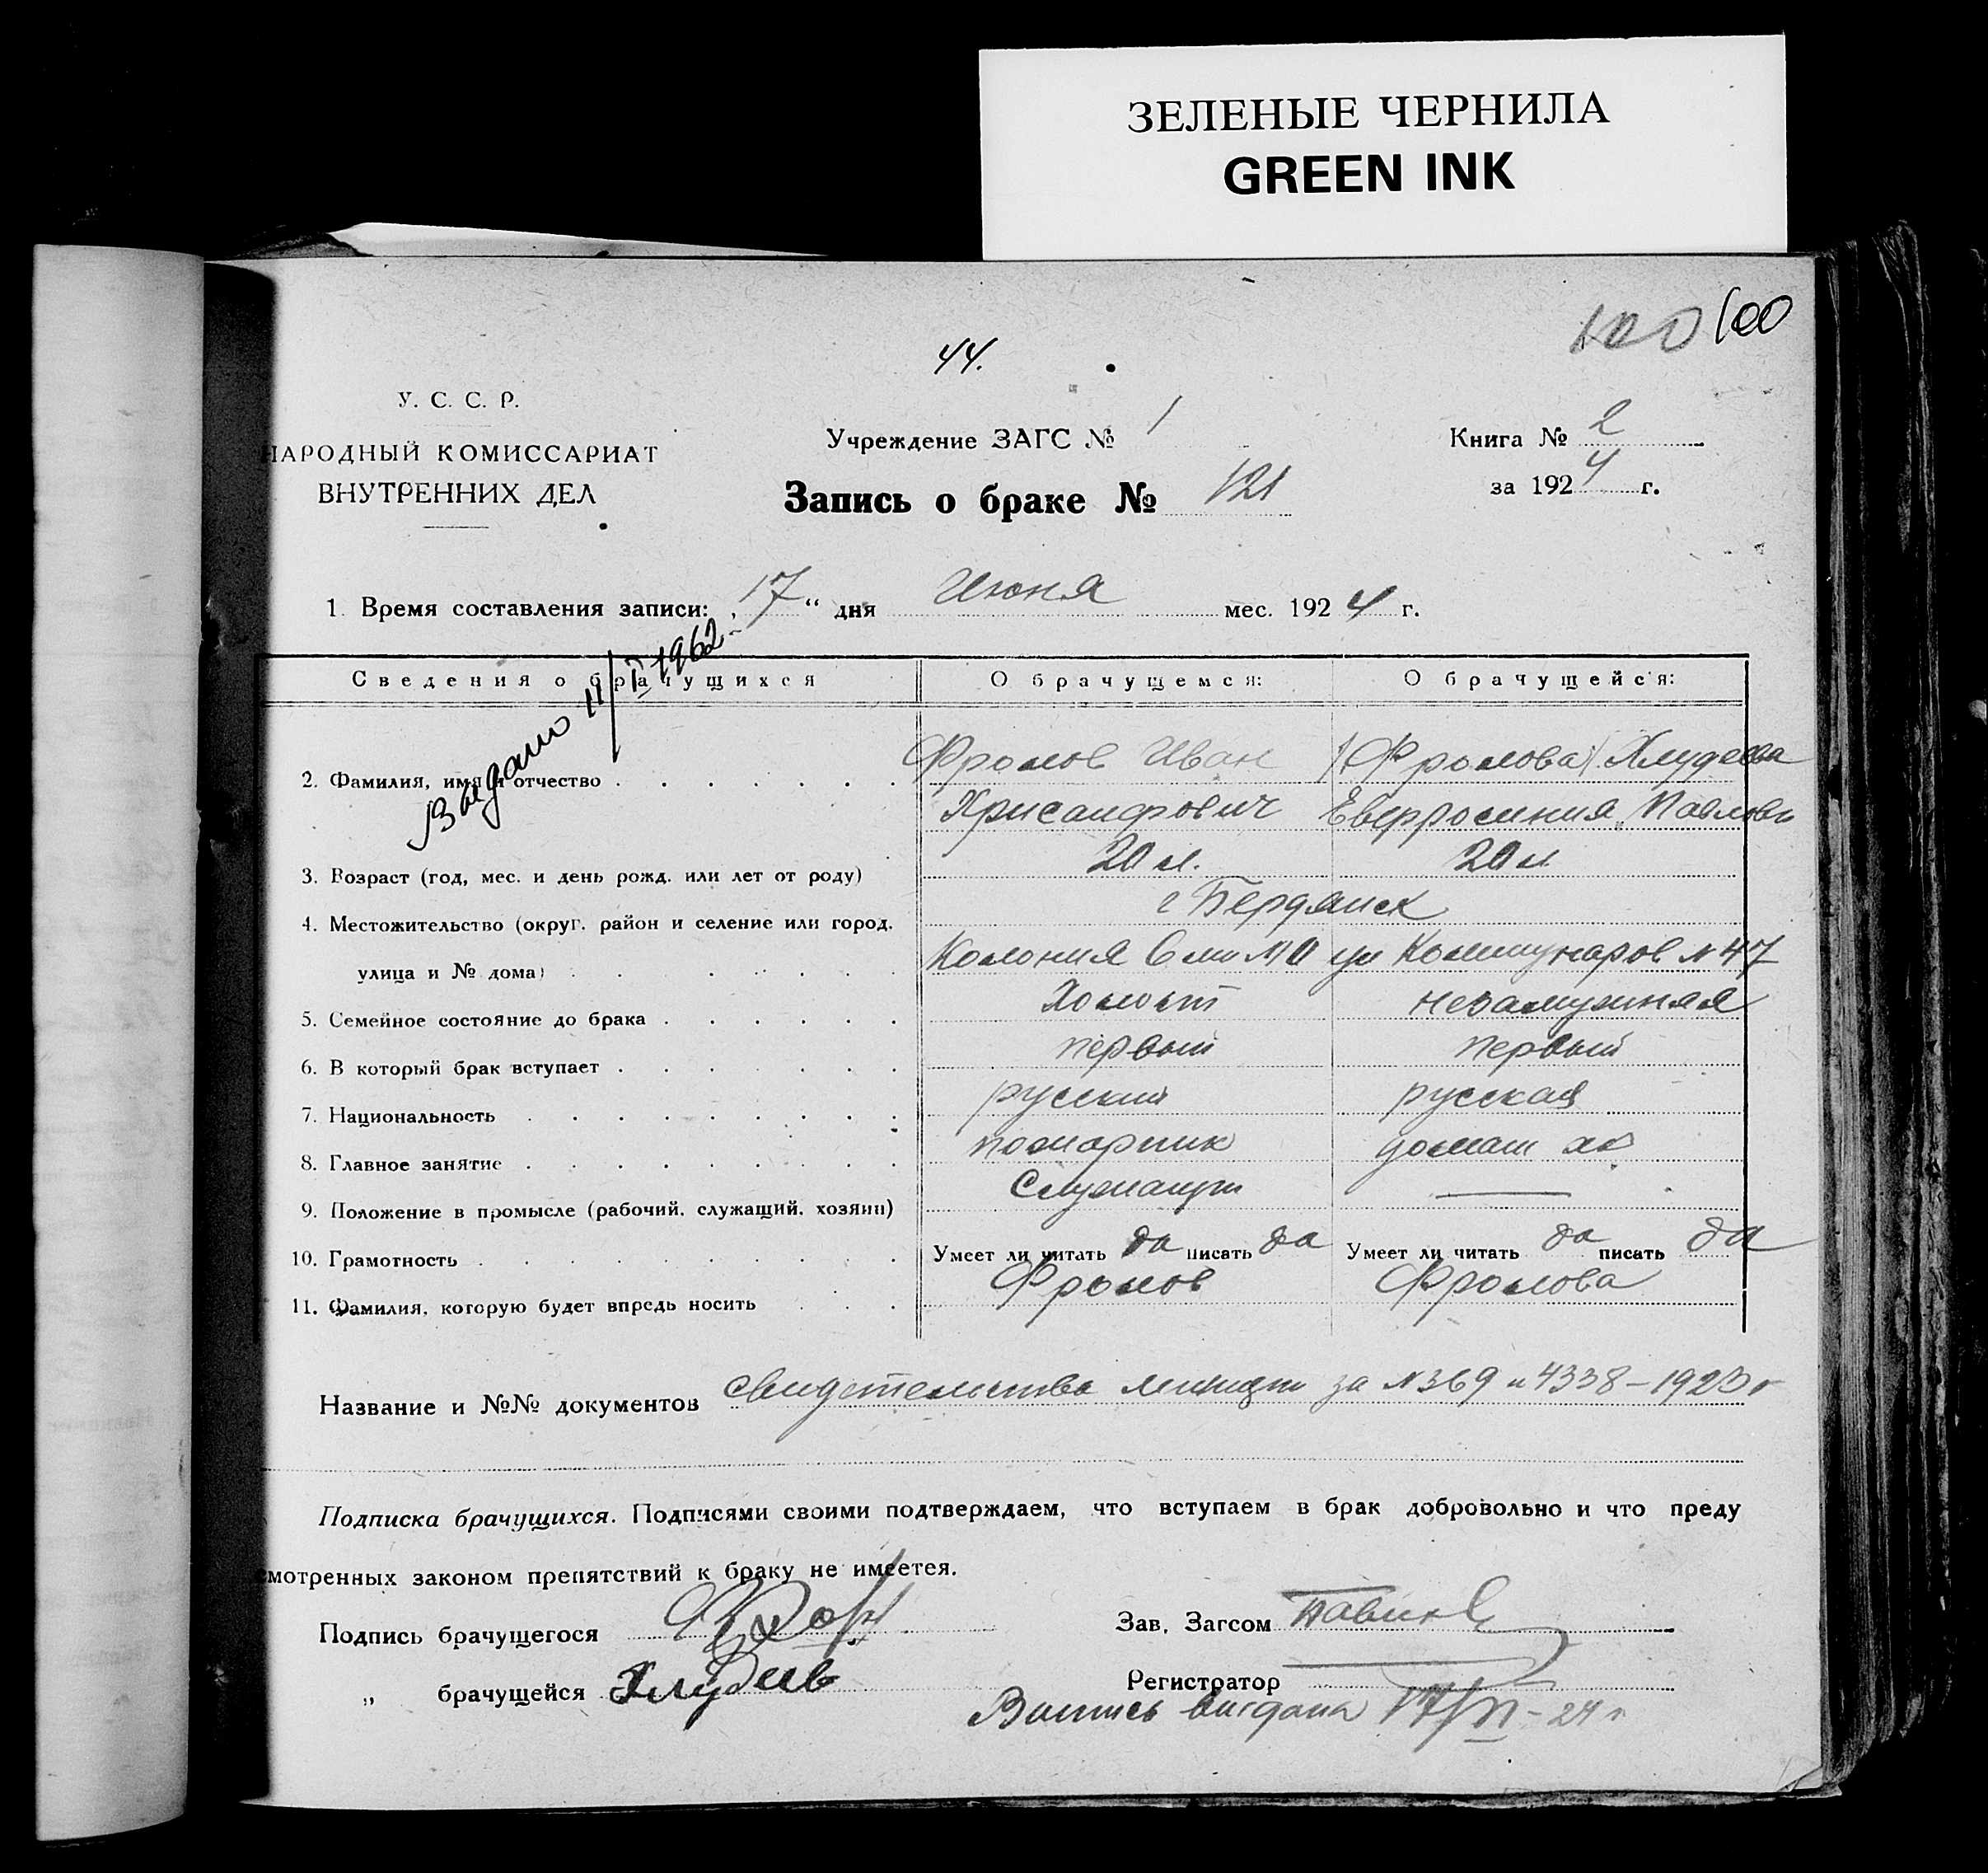 ЗЕЛЕНЫЕ ЧЕРНИЛА
GREEN INK
100 100
44.
У. С. С. Р.
НАРОДНЫЙ КОМИССАРИАТ
ВНУТРЕННИХ ДЕЛ
Учреждение ЗАГС № 1
Запись о браке № 121
Книга № 2
за 1924 г.
1. Время составления записи: „17“ дня Июня мес. 1924 г.
Выдано 11/V 1962
Сведения о брачущихся О брачущемся: О брачущейся:
Фролов Иван (Фролова) Хлудеева
2. Фамилия, имя и отчество
Хрисанфович Евфросиния Павловн
3. Возраст (год, мес. и день рожд. или лет от роду) 20 л. 20 л
4. Местожительство (округ, район и селение или город, г Бердянск
улица и № дома) Колония ул Коммунаров № 47
5. Семейное состояние до брака Холост незамужняя
6. В который брак вступает первый первый
7. Национальность русский русская
8. Главное занятие пожарник домаш хо
9. Положение в промысле (рабочий, служащий, хозяин) Служащий —
10. Грамотность Умеет ли читать да писать да Умеет ли читать да писать да
11. Фамилия, которую будет впредь носить Фролов Фролова
Название и №№ документов свидетельства милиции за № 369 и 4338 – 1923 г
Подписка брачущихся. Подписями своими подтверждаем, что вступаем в брак добровольно и что преду
смотренных законом препятствий к браку не имеется.
Подпись брачущегося Фрол Зав. Загсом
„ брачущейся Хлудеев Регистратор
Выпись выдана 17/VI – 24 г